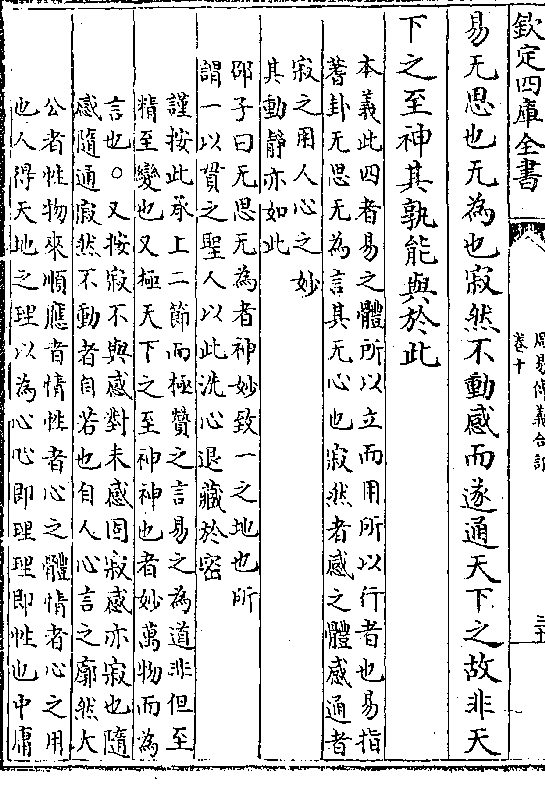 欽定四庫全書
周易傳義合訂
卷十
易无思也无為也寂然不動感而遂通天下之故非天
下之至神其孰能與於此
本義此四者易之體所以立而用所以行者也易指
蓍卦无思无為言其无心也寂然者感之體感通者
寂之用人心之妙
其動靜亦如此
邵子曰无思无為者神妙致一之地也所
謂一以貫之聖人以此洗心退藏於密
謹按此承上二節而極贊之言易之為道非但至
精至變也又極天下之至神神也者妙萬物而為
言也○又按寂不與感對未感固寂感亦寂也隨
感隨通寂然不動者自若也自人心言之廓然大
公者性物來順應者情性者心之體情者心之用
也人得天地之理以為心心即理理即性也中庸